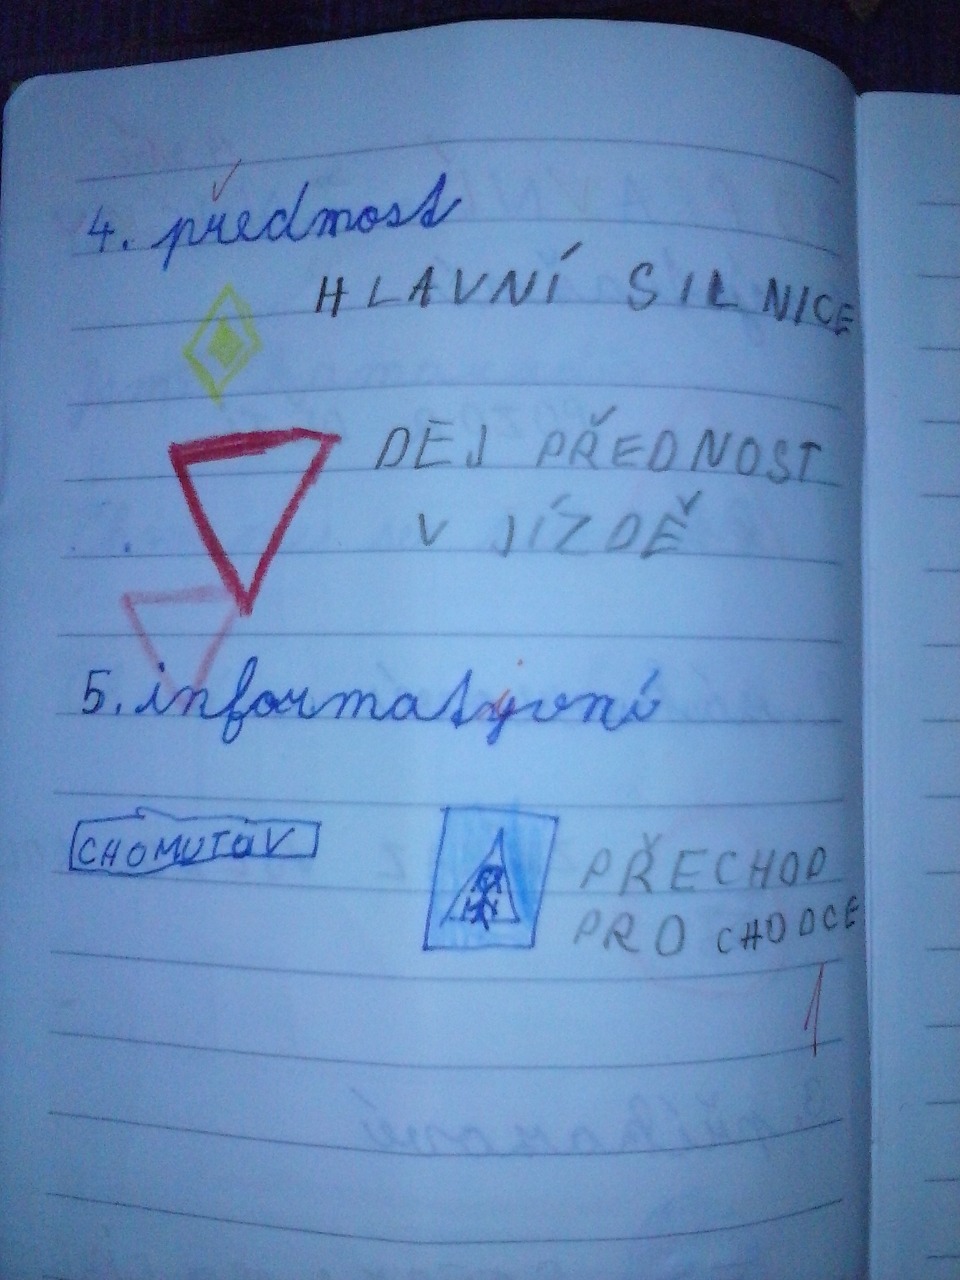 4. předmost
HLAVNÍ SILNICE
DEJ PŘEDNOST
V JÍZDĚ
5. informativní
CHOMUTOV
PŘECHOD
PRO CHODCE
1